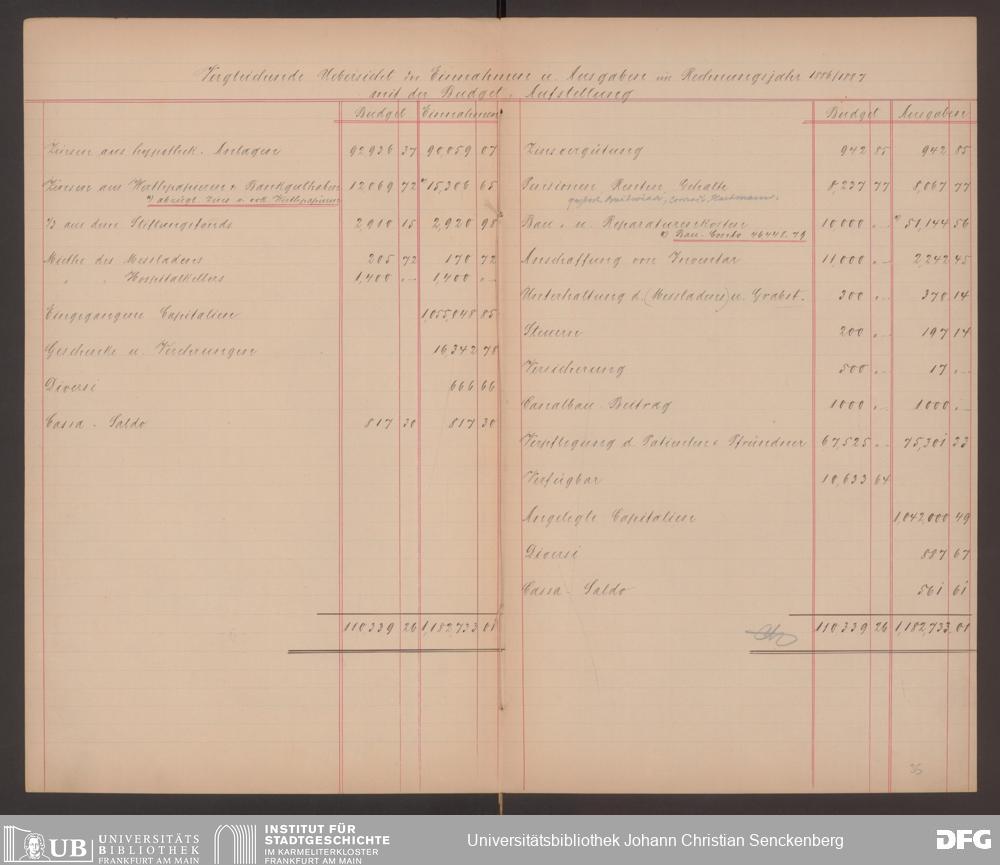 Vergleichende Uebersicht der Einnahmen u. Ausgaben im Rechnungsjahr 1886/1887
mit der Budget-Aufstellung
Budget Einnahmen
Zinsen aus hypothek. Anlagen 92,936 37 90,059 07
Zinsen aus Werthpapieren & Bankguthaben 12,069 72 *) 15,306 65
*) abzügl. Zins a. Werthpapieren
⅓ aus dem Stiftungsfonds 2,910 15 2,920 98
Miethe des Messladens 205 72 170 72
" " Hospitalkellers 1,400 " — 1,400 " —
Eingegangene Capitalien 1,055,048 85
Geschenke u. Verehrungen 16,342 78
Diversi 666 66
Cassa-Saldo 817 30 817 30
110,339 26 1,182,733 01
Budget Ausgaben
Zinsvergütung 942 85 942 85
Pensionen Renten, Gehalte 8,237 77 8,067 77
Bau- u. Reparaturenkosten 10,000 " — *) 51,144 56
*) Bau-Conto 46448.79
Anschaffung von Inventar 11,000 " — 2,242 45
Unterhaltung d. (Messladens) u. Grabst. 300 " — 370 14
Steuern 200 " — 197 14
Versicherung 500 " — 17 " —
Canalbau-Beitrag 1000 " — 1000 " —
Verpflegung d. Patienten & Pfründner 67,525 " — 75,301 33
Verfügbar 10,633 64
Angelegte Capitalien 1,042,000 49
Diversi 887 67
Cassa-Saldo 561 61
110,339 26 1,182,733 01
35
UB UNIVERSITÄTS
BIBLIOTHEK
FRANKFURT AM MAIN
INSTITUT FÜR
STADTGESCHICHTE
IM KARMELITERKLOSTER
FRANKFURT AM MAIN
Universitätsbibliothek Johann Christian Senckenberg
DFG